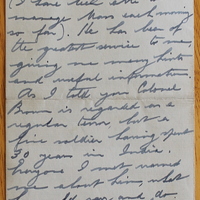 (I have been able to
manage them each morning
so far). He has been of
the greatest service to me,
giving me many hints
and useful information.
As I told you Colonel
is regarded as a
regular terror but a
fine soldier having spent
30 years in India.
Everyone I met warned
me about him what
and do